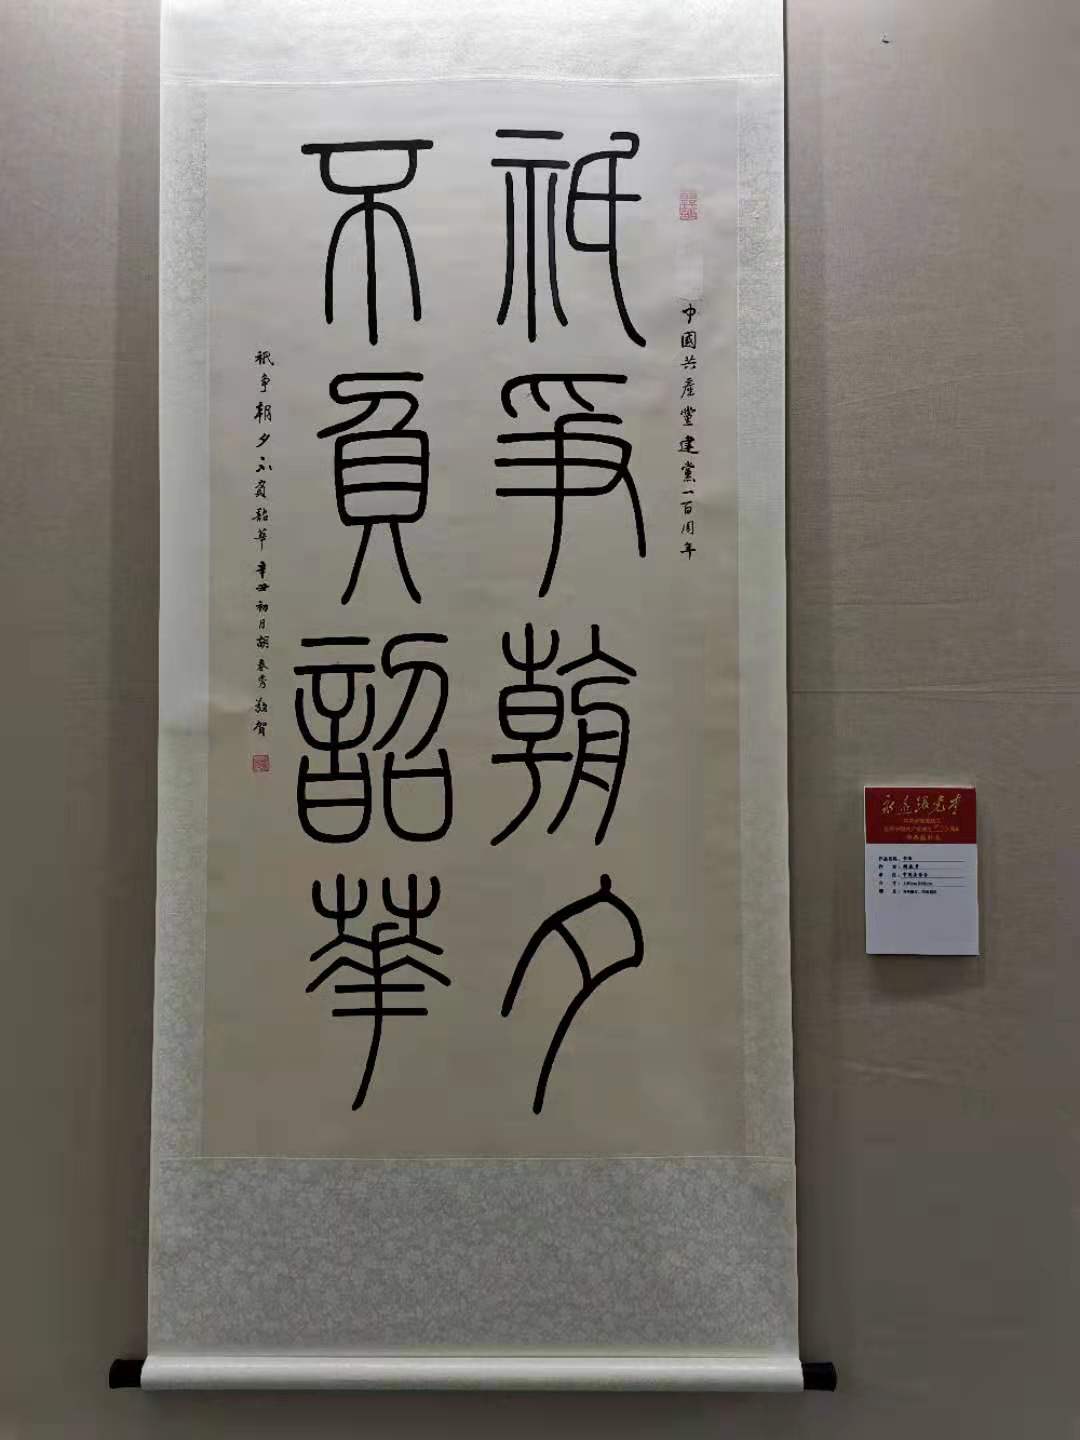 中國共產黨建黨一百周年
祇爭朝夕
不負韶華
祇争朝夕不負韶華辛丑初月胡春秀敬賀
永远跟党走